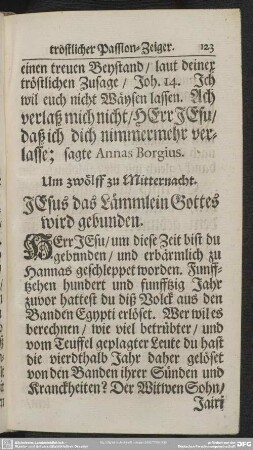 tröstlicher Passion-Zeiger. 123
einen treuen Beystand/ laut deiner
tröstlichen Zusage/ Joh. 14. Ich
wil euch nicht Wäysen lassen. Ach
verlaß mich nicht/ HErr JEsu/
daß ich dich nimmermehr ver-
lasse; sagte Annas Borgius.
Um zwölff zu Mitternacht.
JEsus das Lämmlein Gottes
wird gebunden.
HErr JEsu/ um diese Zeit bist du
gebunden/ und erbärmlich zu
Hannas geschleppet worden. Funff-
tzehen hundert und funfftzig Jahr
zuvor hattest du diß Volck aus den
Banden Egypti erlöset. Wer wil es
berechnen/ wie viel betrübter/ und
vom Teuffel geplagter Leute du hast
die vierdthalb Jahr daher gelöset
von den Banden ihrer Sünden und
Kranckheiten? Der Witwen Sohn/
Jairi